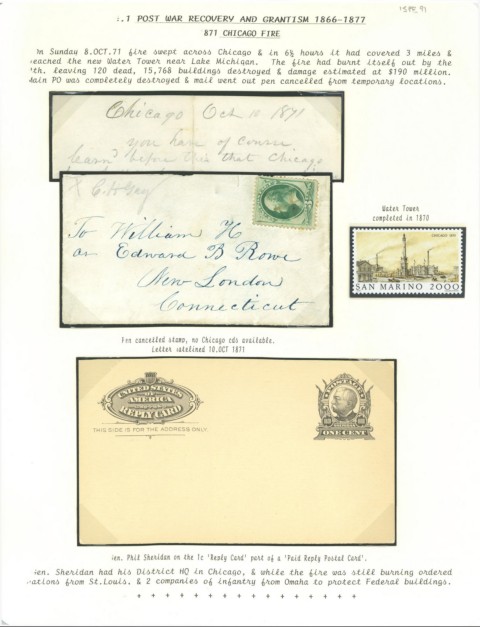 1SPE 91
.1 POST WAR RECOVERY AND GRANTISM 1866-1877
871 CHICAGO FIRE
On Sunday 8.OCT.71 fire swept across Chicago & in 6½ hours it had covered 3 miles &
reached the new Water Tower near Lake Michigan. The fire had burnt itself out by the
th. leaving 120 dead, 15,768 buildings destroyed & damage estimated at $190 million.
Main PO was completely destroyed & mail went out pen cancelled from temporary locations.
Chicago Oct 10 1871
you have of course
learn'd before this that Chicago
To William H
or Edward B Rowe
New London
Connecticut
Water Tower
completed in 1870
SAN MARINO 2000
Pen cancelled stamp, no Chicago cds available.
Letter datelined 10.OCT 1871
UNITED STATES
OF
AMERICA
REPLY CARD
THIS SIDE IS FOR THE ADDRESS ONLY.
ONE CENT
Gen. Phil Sheridan on the 1c 'Reply Card' part of a 'Paid Reply Postal Card'.
Gen. Sheridan had his District HQ in Chicago, & while the fire was still burning ordered
rations from St.Louis. & 2 companies of infantry from Omaha to protect Federal buildings.
+ + + + + + + + + + + + + + +